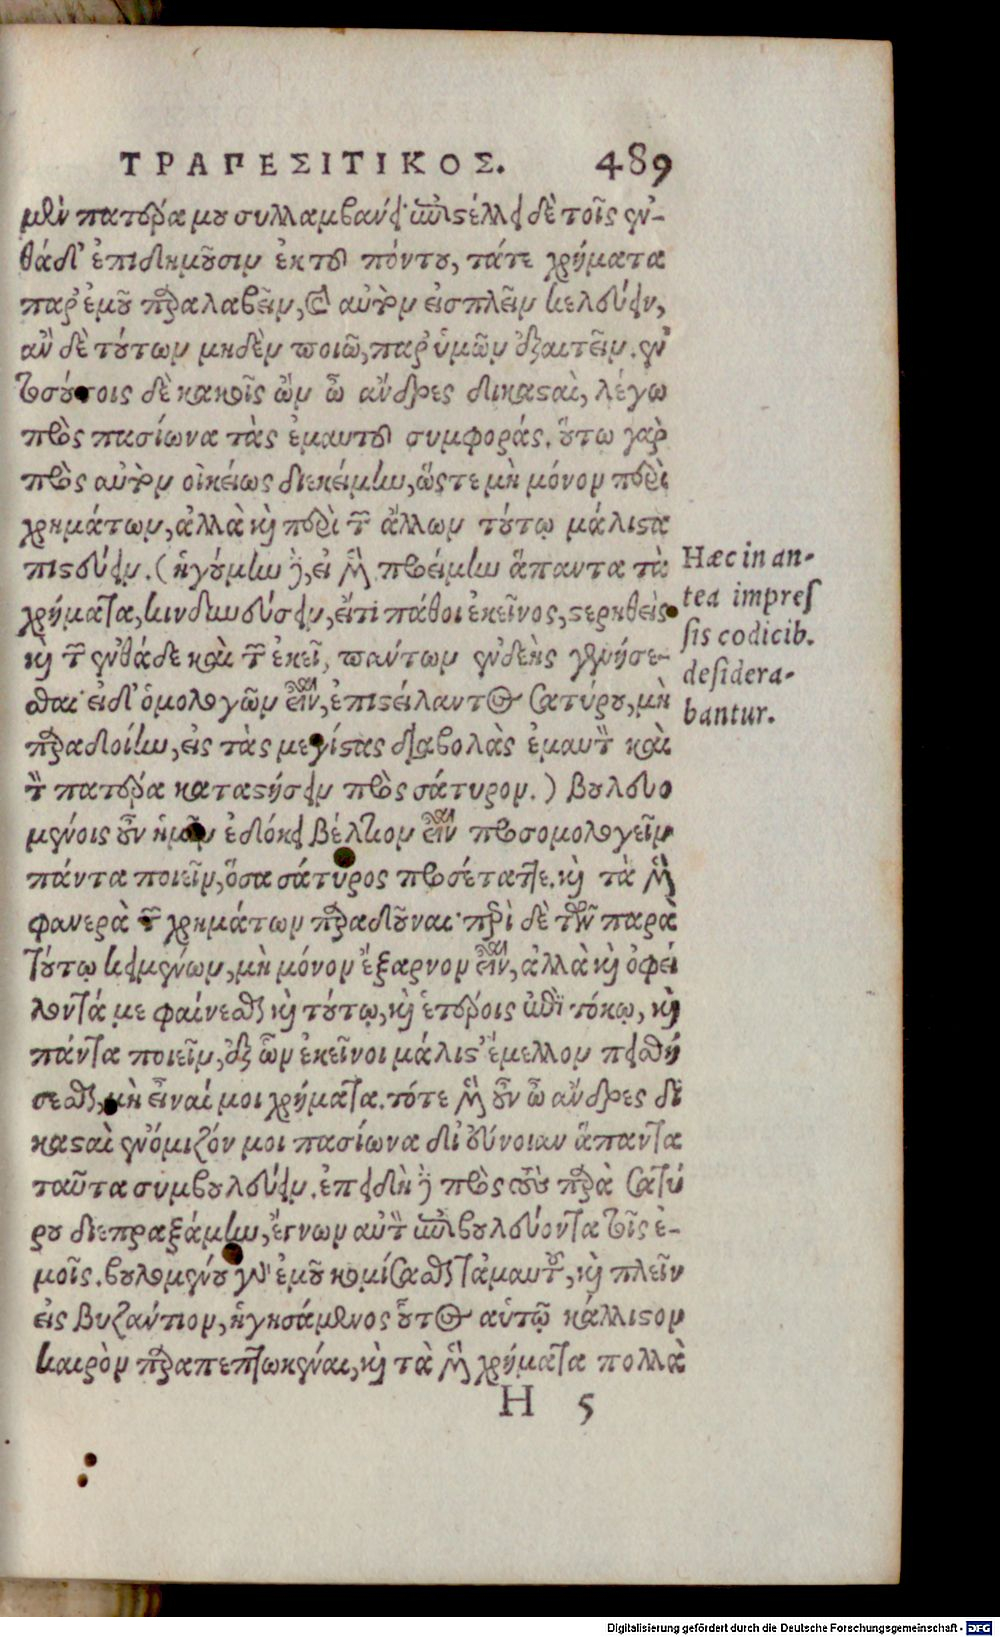 ΤΡΑΠΕΣΙΤΙΚΟΣ. 489
μὲν πατέρα μου συλλαμβάνει· ἐπιστέλλει δὲ τοῖς ἐν-
θάδ' ἐπιδημοῦσιν ἐκ τοῦ πόντου, τά τε χρήματα
παρ' ἐμοῦ παραλαβεῖν, καὶ αὐτὸν εἰσπλεῖν κελεύειν,
ἂν δὲ τούτων μηδὲν ποιῶ, παρ' ὑμῶν ἐξαιτεῖν. ἐν
τοσούτοις δὲ κακοῖς ὢν ὦ ἄνδρες δικασταὶ, λέγω
πρὸς πασίωνα τὰς ἐμαυτοῦ συμφοράς. οὕτω γὰρ
πρὸς αὐτὸν οἰκείως διεκείμην, ὥστε μὴ μόνον περὶ
χρημάτων, ἀλλὰ καὶ περὶ τῶν ἄλλων τούτῳ μάλιστα
πιστεύειν. (ἡγούμην δὲ, εἰ μὲν προείμην ἅπαντα τὰ
χρήματα, κινδυνεύσειν, εἴ τι πάθοι ἐκεῖνος, στερηθεὶς
καὶ τῶν ἐνθάδε καὶ τῶν ἐκεῖ, πάντων ἐνδεὴς γενήσε-
σθαι· εἰ δ' ὁμολογῶν εἶναι, ἐπιστείλαντος Σατύρου, μὴ
παραδοίην, εἰς τὰς μεγίστας διαβολὰς ἐμαυτὸν καὶ
τὸν πατέρα καταστήσειν πρὸς σάτυρον.) βουλευο
μένοις οὖν ἡμῖν ἐδόκει βέλτιον εἶναι προσομολογεῖν
πάντα ποιεῖν, ὅσα σάτυρος προσέταττε. καὶ τὰ μὲν
φανερὰ τῶν χρημάτων παραδοῦναι· περὶ δὲ τῶν παρὰ
τούτῳ κειμένων, μὴ μόνον ἔξαρνον εἶναι, ἀλλὰ καὶ ὀφεί
λοντά με φαίνεσθαι καὶ τούτῳ, καὶ ἑτέροις ἐπὶ τόκῳ, καὶ
πάντα ποιεῖν, ἐξ ὧν ἐκεῖνοι μάλιστ' ἔμελλον πεισθή
σεσθαι, μὴ εἶναί μοι χρήματα. τότε μὲν οὖν ὦ ἄνδρες δι
κασταὶ ἐνόμιζόν μοι πασίωνα δι' εὔνοιαν ἅπαντα
ταῦτα συμβουλεύειν. ἐπειδὴ δὲ πρὸς τοὺς παρὰ Σατύ
ρου διεπραξάμην, ἔγνων αὐτὸν ἐπιβουλεύοντα τοῖς ἐ-
μοῖς. βουλομένου γὰρ ἐμοῦ κομίσασθαι τἀμαυτοῦ, καὶ πλεῖν
εἰς βυζάντιον, ἡγησάμενος οὗτος αὑτῷ κάλλιστον
καιρὸν παραπεπτωκέναι, καὶ τὰ μὲν χρήματα πολλὰ
H 5
Hæc in an-
tea impres
sis codicib.
desidera-
bantur.
Digitalisierung gefördert durch die Deutsche Forschungsgemeinschaft - DFG